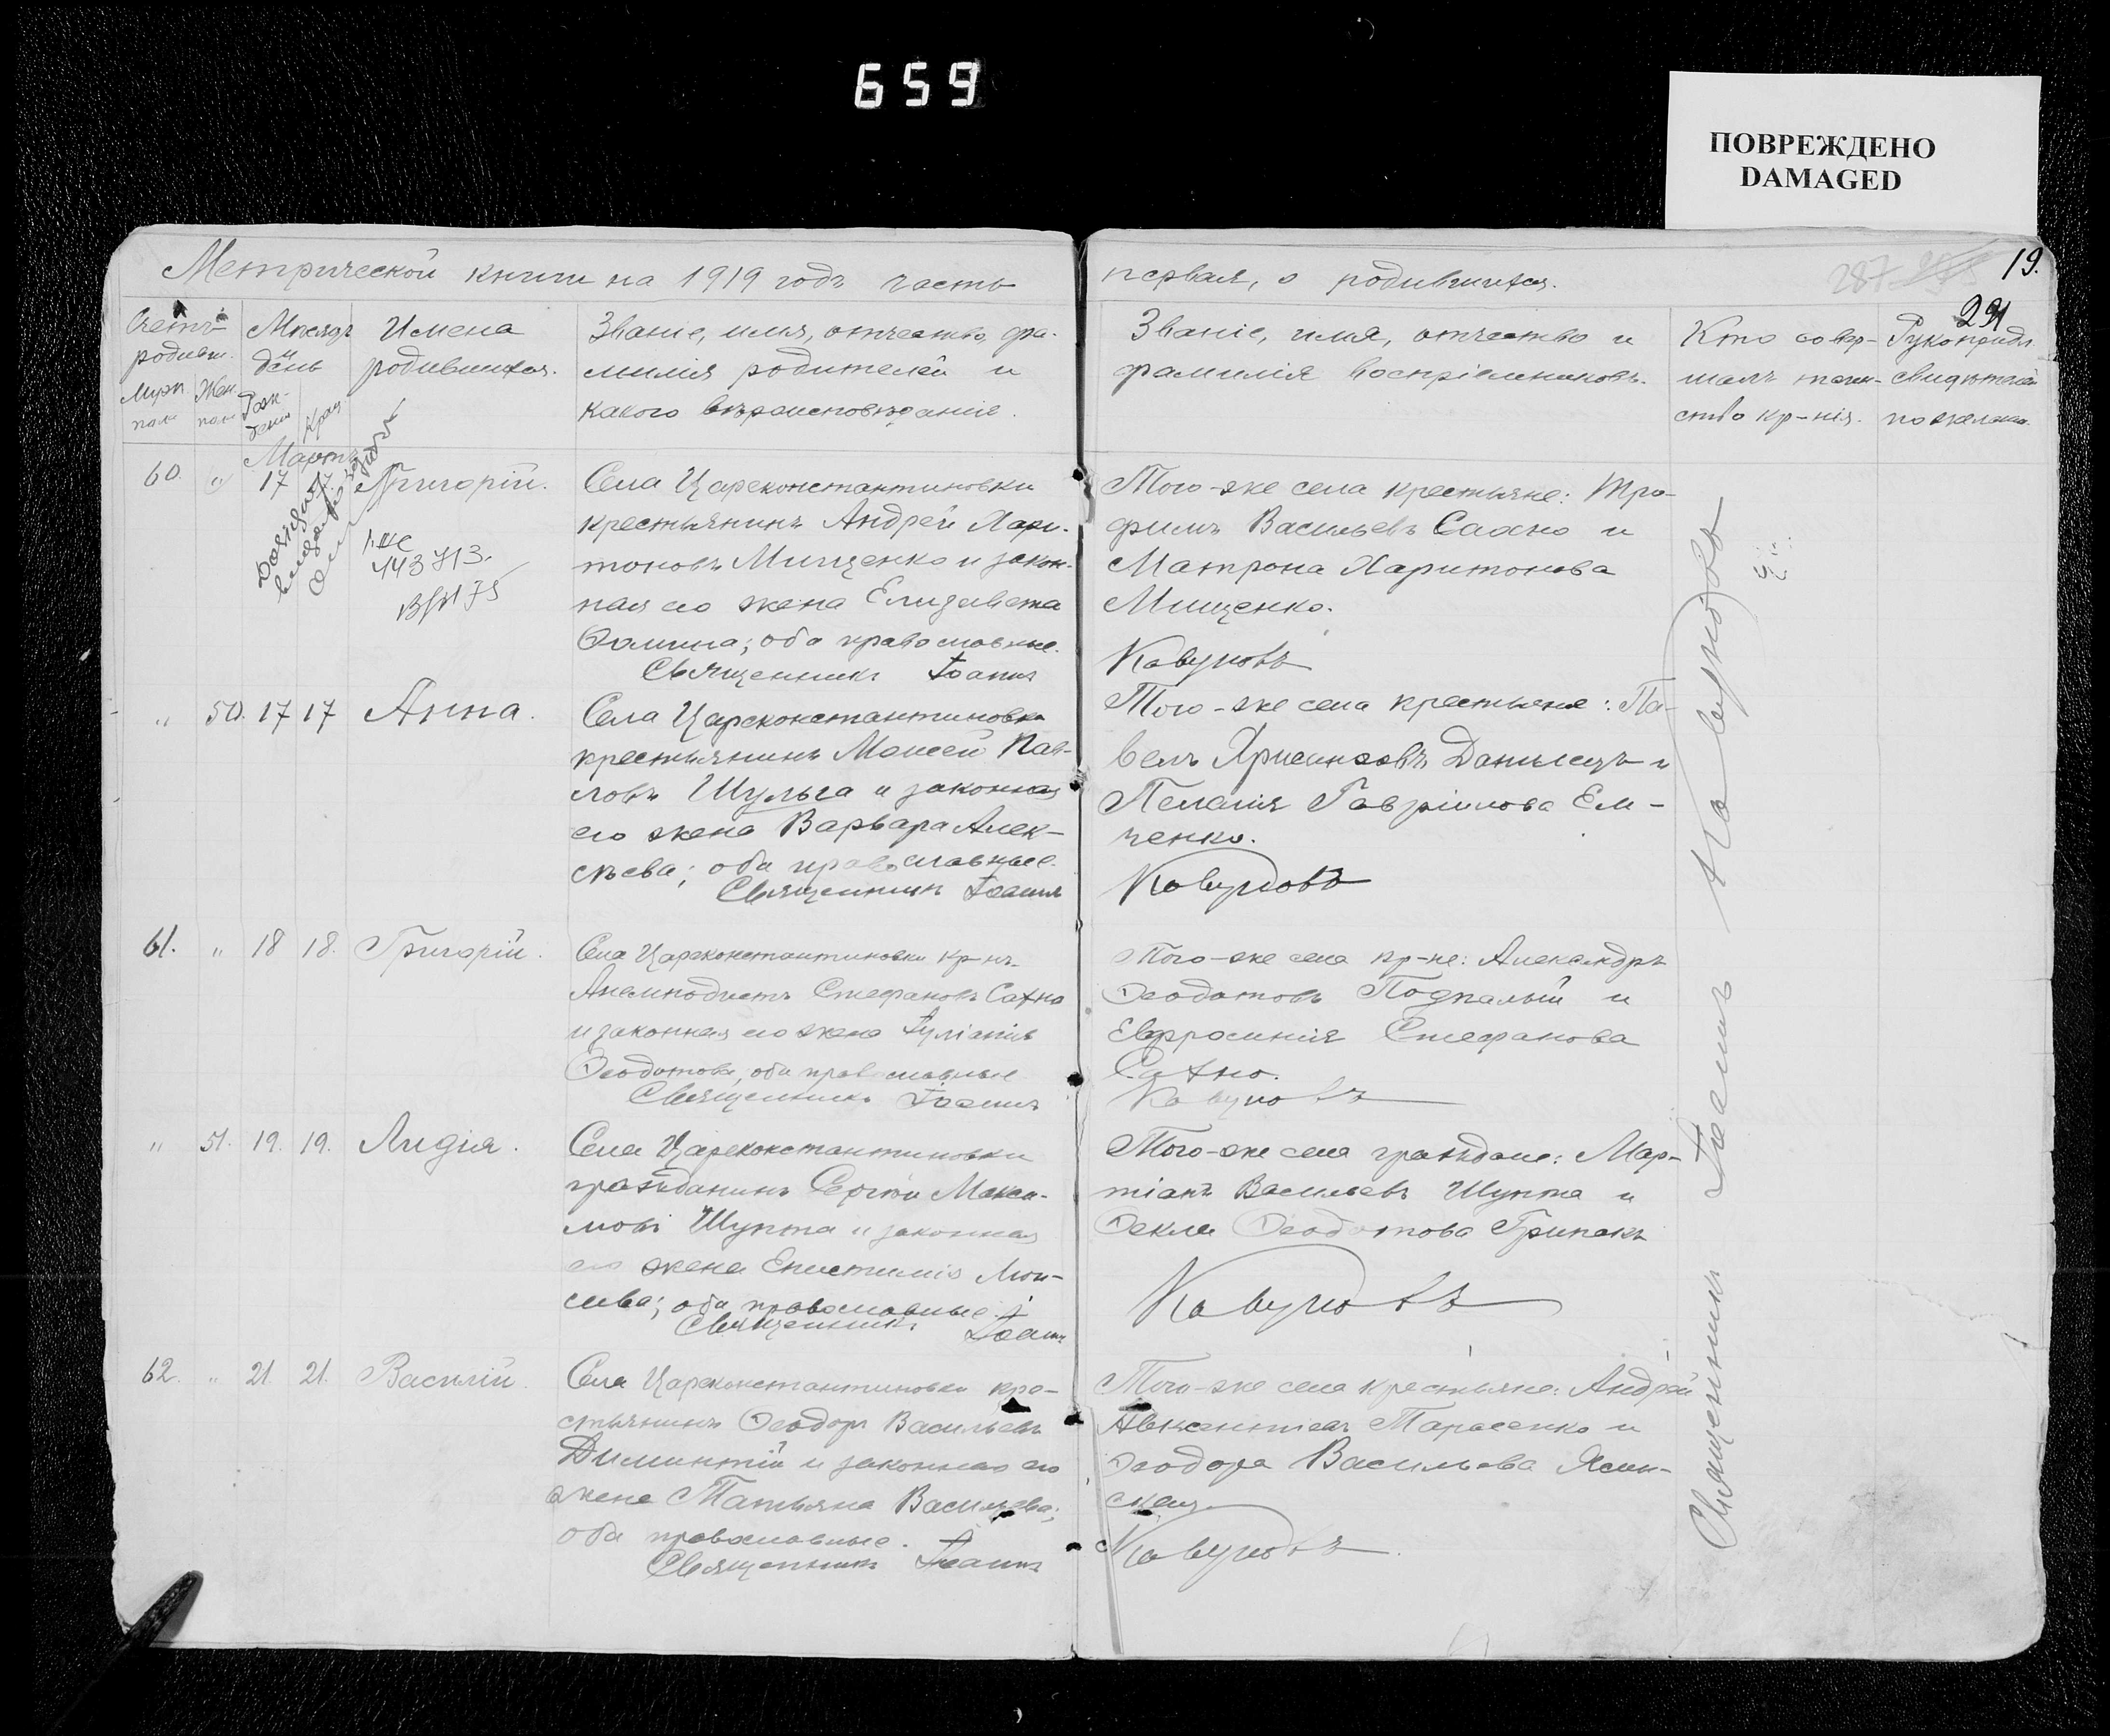 659
ПОВРЕЖДЕНО
DAMAGED
Метрической книги на 1919 годъ часть
первая, о родившихся.
287
19.
291
Счетъ родивш.
Мужск. пола
Женск. пола
Мѣсяцъ и день
Рожденія
Крещ.
Имена
родившихся.
Званіе, имя, отчество, фа-
милія родителей и
какого вѣроисповѣданія.
Званіе, имя, отчество и
фамилія воспріемниковъ.
Кто совер-
шалъ таин-
ство кр-нія.
Рукоприкл.
свидѣтелей
по желанію.
Мартъ
60. " 17 17. Григорій.
443713.
Села Цареконстантиновки
крестьянинъ Андрей Хари-
тоновъ Мищенко и закон-
ная его жена Елизавета
Фомина; оба православные.
Священникъ Іоаннъ
Того-же села крестьяне: Тро-
фимъ Васильевъ Сахно и
Матрона Харитонова
Мищенко.
Кавуновъ
" 50. 17 17 Анна.
Села Цареконстантиновки
крестьянинъ Моисей Пав-
ловъ Шульга и законная
его жена Варвара Алек-
сѣева; оба православные.
Священникъ Іоаннъ
Того-же села крестьяне: Па-
велъ Хрисанфовъ Данилецъ и
Пелагія Гавріилова Ем-
ченко.
Кавуновъ
61. " 18 18. Григорій.
Села Цареконстантиновки кр-нъ
Анемподистъ Стефановъ Сахно
и законная его жена Іуліанія
Ѳеодотова, оба православные
Священникъ Іоаннъ
Того-же села кр-не: Александръ
Ѳеодотовъ Подпалый и
Евфросинія Стефанова
Сахно.
Кавуновъ
" 51. 19. 19. Лидія.
Села Цареконстантиновки
гражданинъ Сергѣй Макси-
мовъ Шупта и законная
его жена Епистимія Мои-
сеева; оба православные.
Священникъ Іоаннъ
Того-же села граждане: Мар-
тіанъ Васильевъ Шупта и
Ѳекла Ѳеодотова Грипакъ
Кавуновъ
62. " 21. 21. Василій.
Села Цареконстантиновки кре-
стьянинъ Ѳеодоръ Васильевъ
и законная его
жена Татьяна Васильева;
оба православные.
Священникъ Іоаннъ
Того-же села крестьяне: Андрей
Авксентіевъ Тарасенко и
Ѳеодора Васильева Ясин-
ская.
Кавуновъ
Священникъ Іоаннъ Кавуновъ